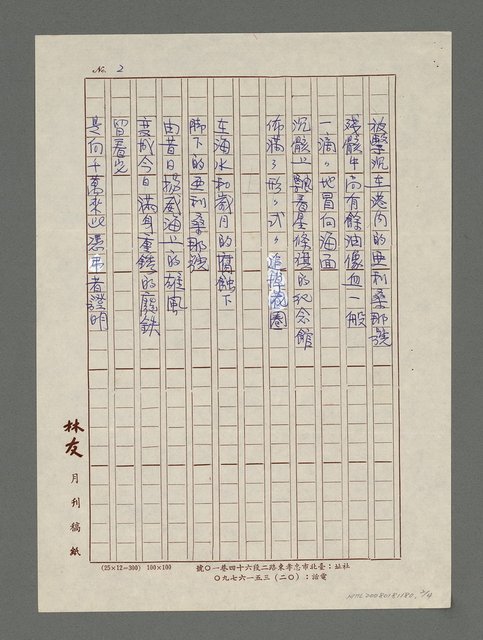 No. 2
被擊沉在港内的亜利桑那號
殘骸中尚有餘油像血一般
一滴々地冒向海面
沉骸上飄着星條旗的紀念館
佈滿了形々式々追悼花圈
在海水和歲月的腐蝕下
腳下的亜利桑那號
由昔日揚威海上的雄風
變成今日滿身重銹的廢鉄
留着它
是向千萬來此憑弔者證明
林友
月刊稿紙
(25×12=300) 100×100
社址：臺北市忠孝東路二段六十四巷一〇號
電話：(〇二)三五一六七九〇
HTL20080181180 2/4